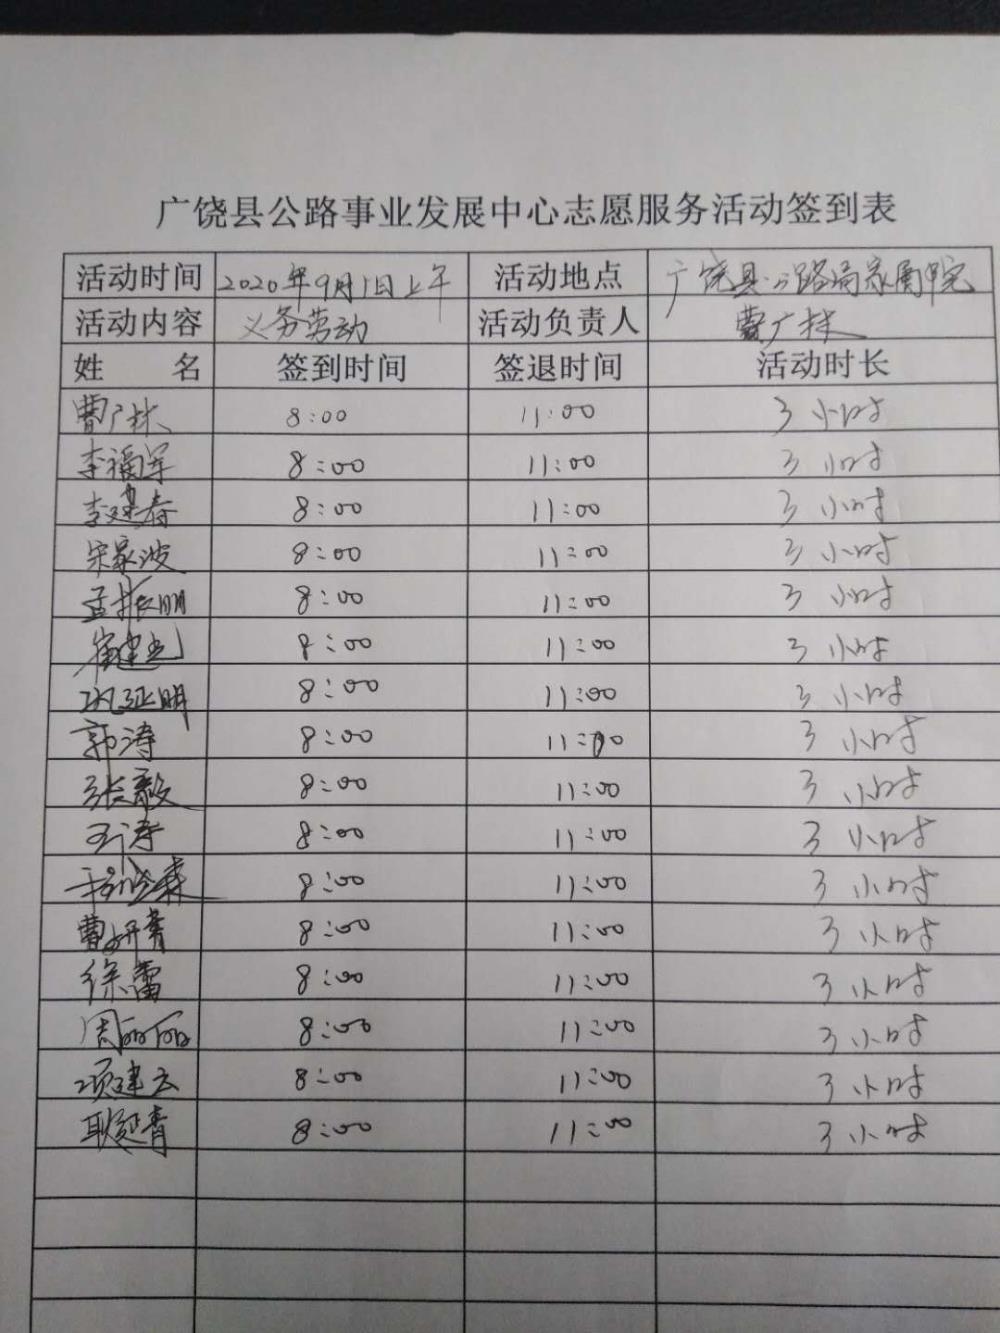 广饶县公路事业发展中心志愿服务活动签到表
活动时间 2020年9月1日上午 活动地点 广饶县公路局家属院
活动内容 义务劳动 活动负责人 曹广林
姓 名 签到时间 签退时间 活动时长
曹广林 8:00 11:00 3小时
李福军 8:00 11:00 3小时
李建春 8:00 11:00 3小时
宋家波 8:00 11:00 3小时
孟振明 8:00 11:00 3小时
崔建光 8:00 11:00 3小时
巩延明 8:00 11:00 3小时
郭涛 8:00 11:00 3小时
张毅 8:00 11:00 3小时
8:00 11:00 3小时
8:00 11:00 3小时
曹妍青 8:00 11:00 3小时
徐蕾 8:00 11:00 3小时
周丽丽 8:00 11:00 3小时
项建云 8:00 11:00 3小时
耿延青 8:00 11:00 3小时